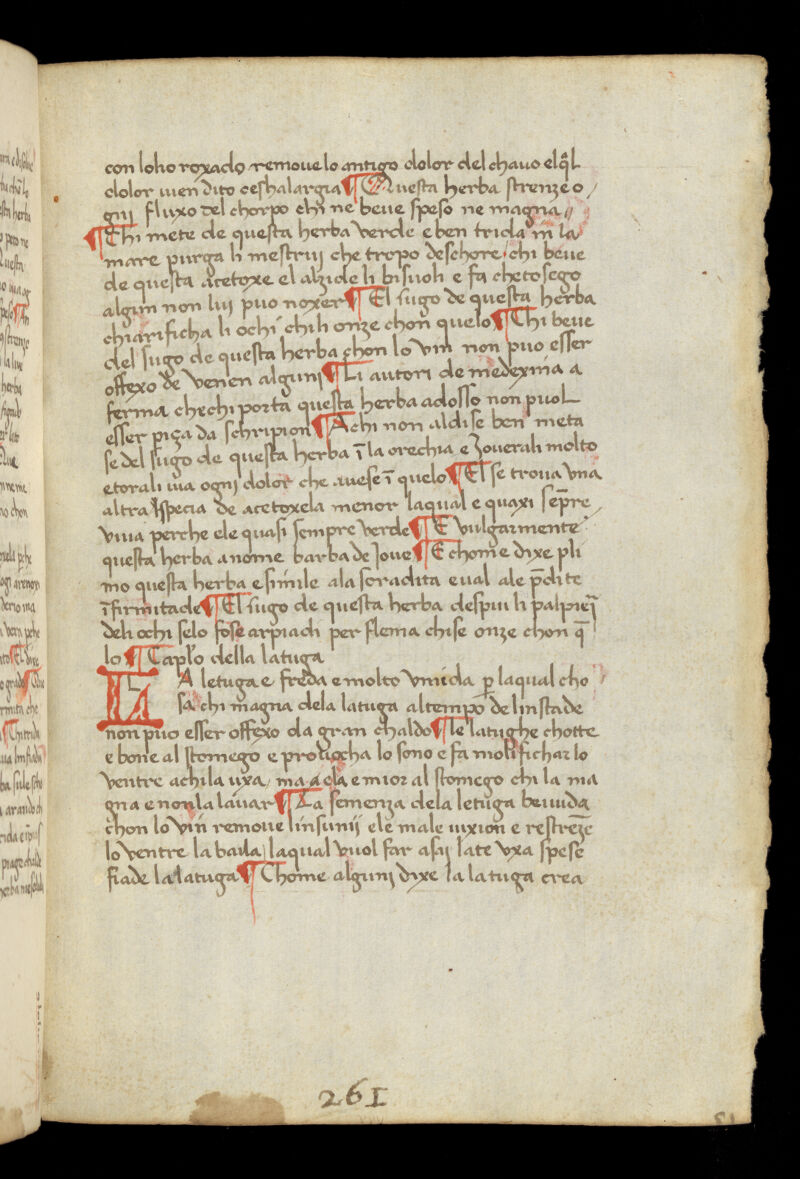 con loho roxado remove lo antigo dolor del chavo el ql̃
dolor vien dito ceshalargia ¶ Questa herba strenze o
gnj fluxo del chorpo chi ne beve speso ne magna
¶ Chi mete de questa herba verde e ben trida in la
mare purga li mestrui che tropo deschore. chi beve
de questa acetoxe el alzide li bisuoli e fa che tosego
algun non lui puo noxer ¶ El sugo de questa herba
chiarificha li ochi chili onze chon quelo ¶ Chi beve
del sugo de questa herba chon lo vin non puo esser
offexo de venen alguni ¶ Li autori de medexina a
ferma che chi porta questa herba adosso non puol
esser piça da schripion ¶ Achi non aldise ben meta
se del sugo de questa herba ĩ la orechia e zoverali molto
e torali via ogni dolor che avese ĩ quelo ¶ El se trova una
altra specia de acetoxela menor laqual e quaxi sep̃re
viva perche ele quasi sempre verde ¶ E vulgarmente
questa herba a nome barba de Jove ¶ E chome dixe pli
nio questa herba e simile ala soradita e val ale p̃dite
ĩfirmitade ¶ El sugo de questa herba despui li palpierj
deli ochi selo fose arpiadi per flema chise onze chon q̃
lo ¶ Caplo della latuga
LA letuga e freda e molto umida p̱ laqual cho
sa chi magna dela latuga al tempo de linstade
non puo esser offexo da gran chaldo ¶ le latughe chotte
e bone al stomego e provocha lo sono e fa molifichar lo
ventre achi la uxa, ma a ela e mior al stomego chi la ma
gna e non la lavar ¶ La semenza dela letuga bevuda
chon lo vin remove linsunij e le male vixion e restrenz̃e
lo ventre la baila, laqual vuol far asai late uxa spese
fiade la latuga ¶ Chome alguni dixe la latuga crea
261